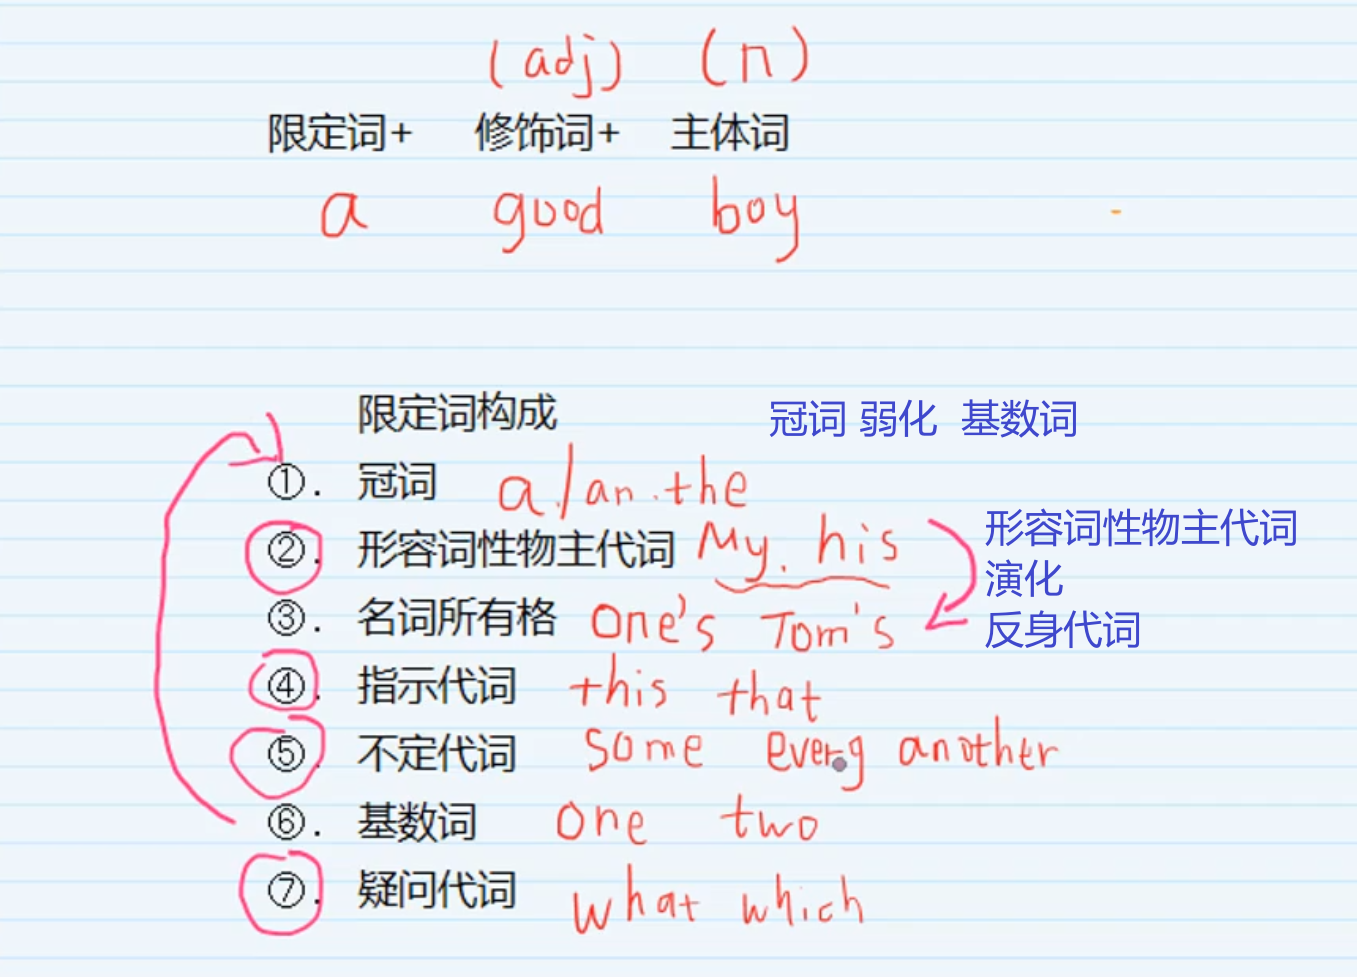 (adj) (n)
限定词+ 修饰词+ 主体词
a good boy
限定词构成
冠词 弱化 基数词
①. 冠词 a./an.the
②. 形容词性物主代词 My. his
形容词性物主代词
演化
反身代词
③. 名词所有格 one's Tom's
④. 指示代词 this that
⑤. 不定代词 some every another
⑥. 基数词 one two
⑦. 疑问代词 what which